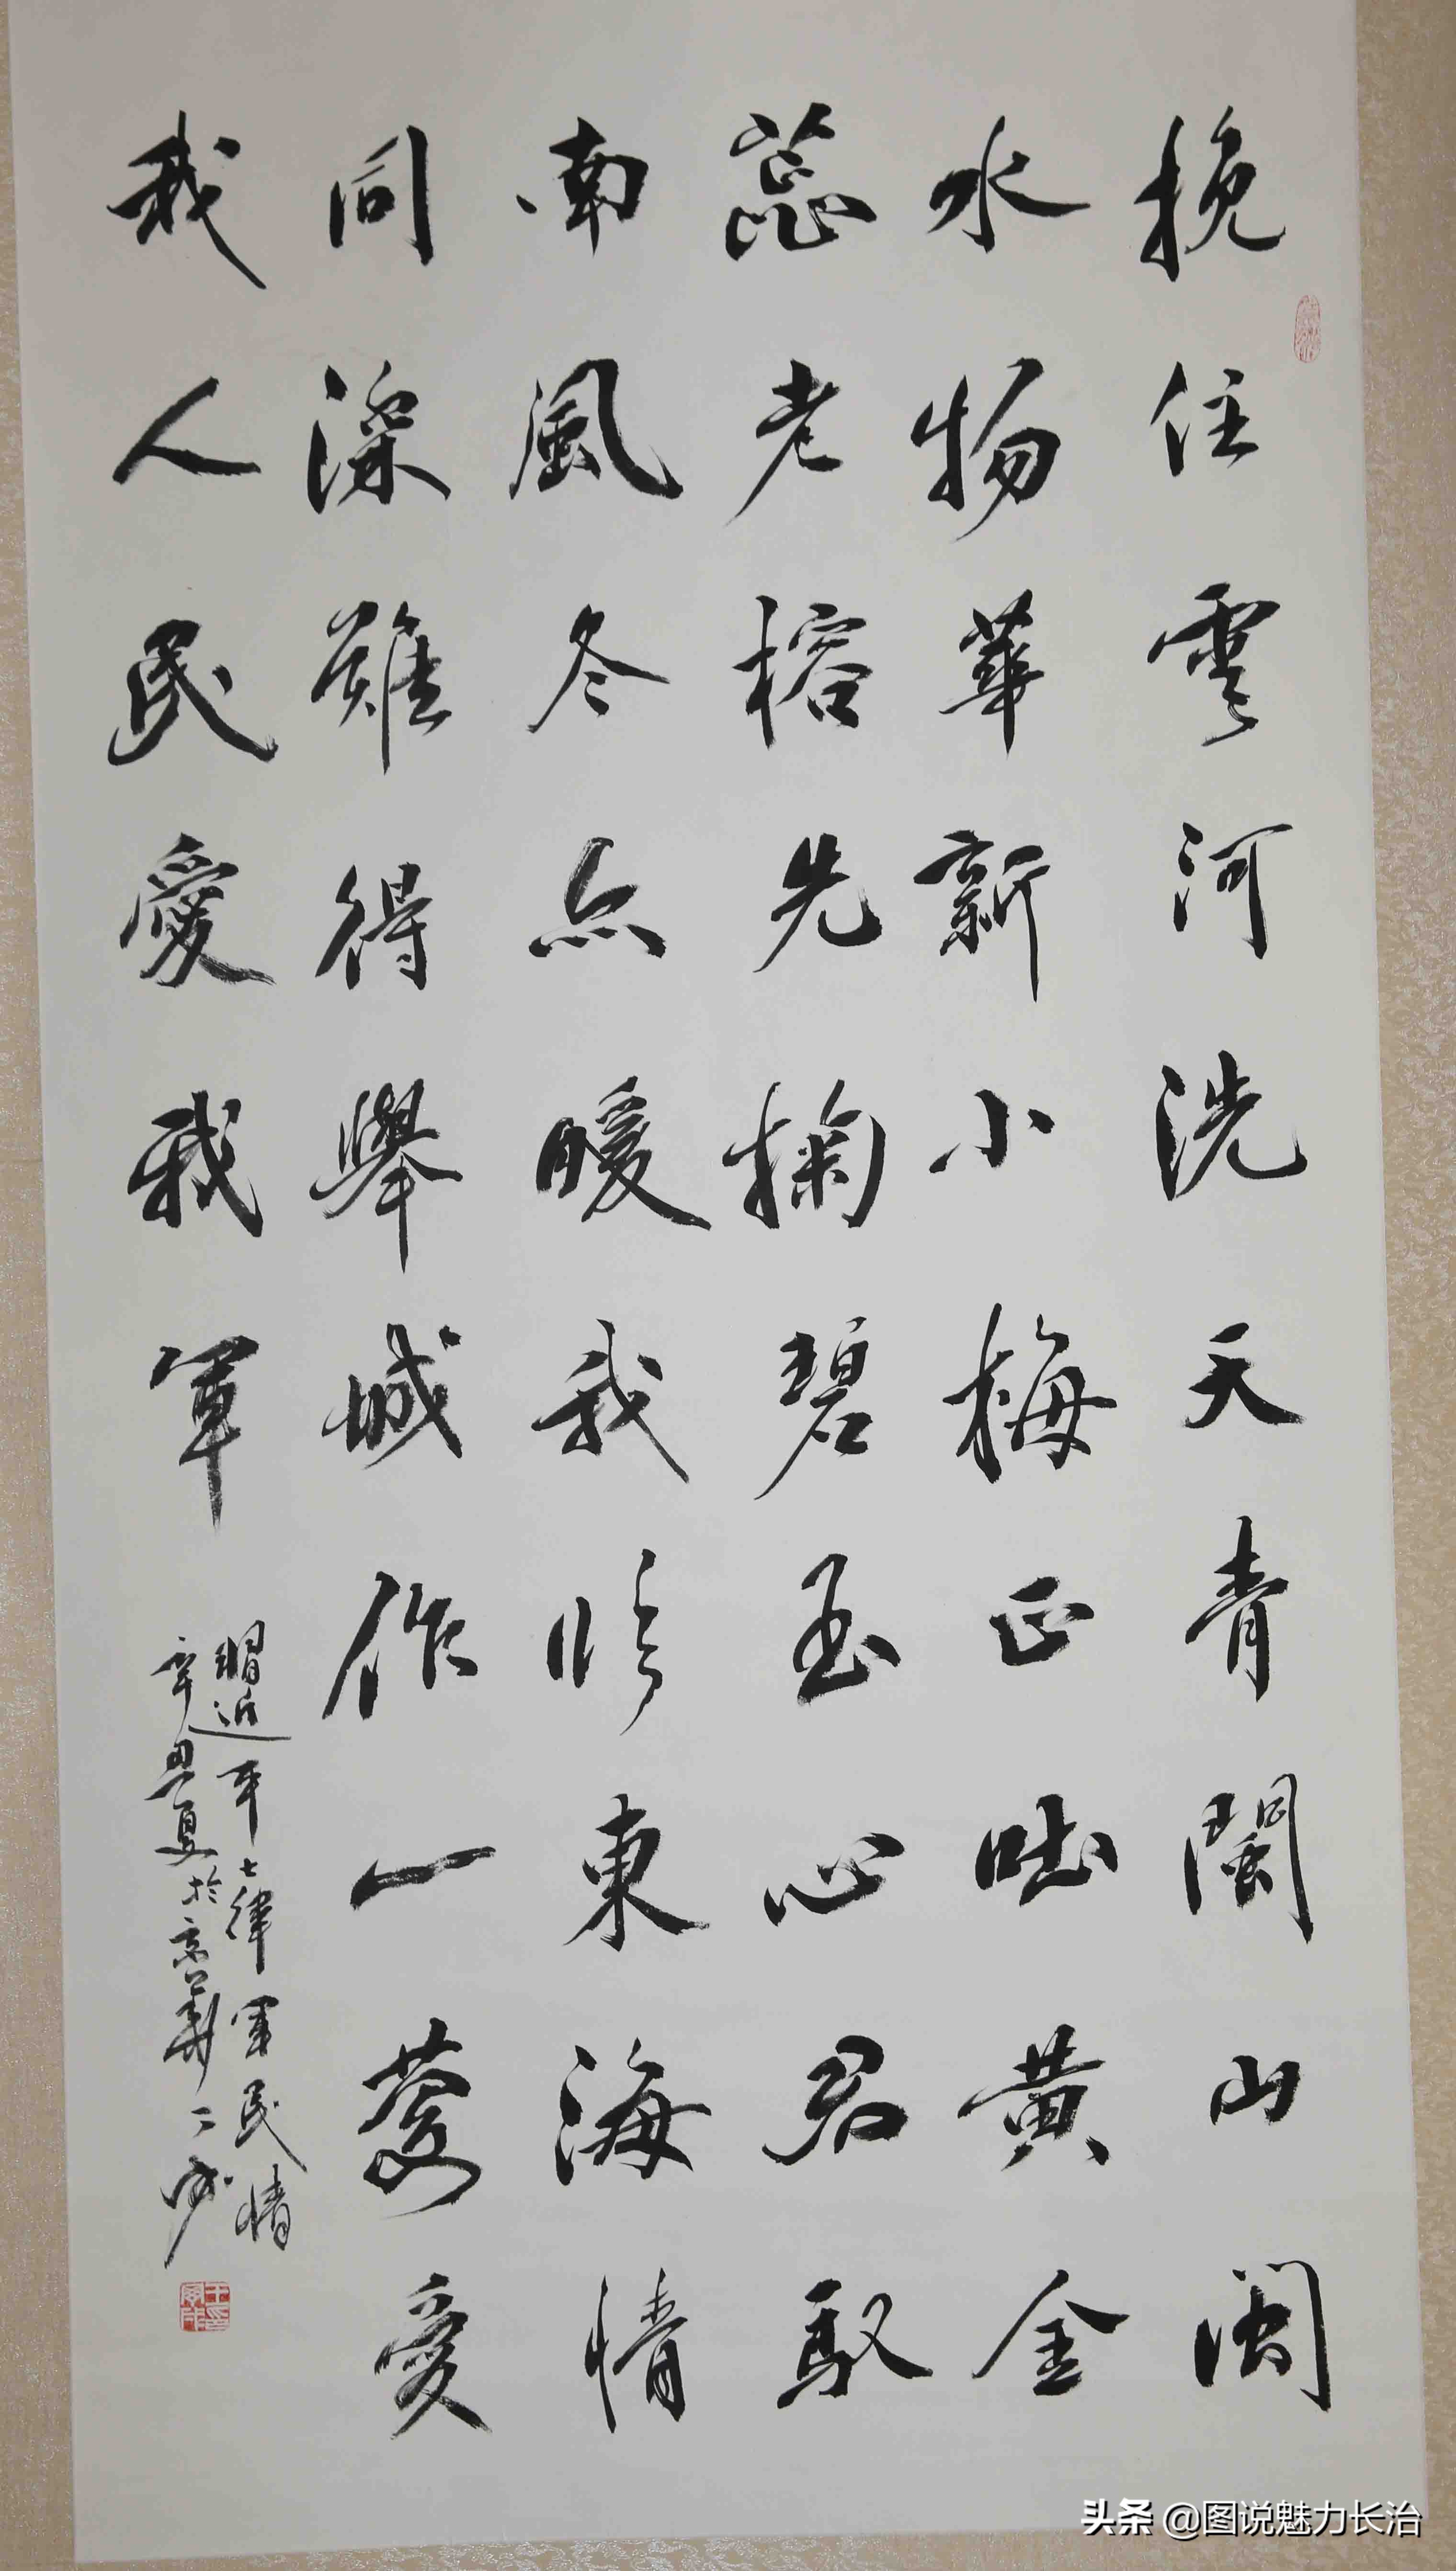 挽住雲河洗天青閩山閩
水物華新小梅正吐黄金
蕊老榕先掬碧玉心君馭
南風冬亦暖我临東海情
同深難得舉城作一慶愛
我人民愛我軍
習近平七律軍民情
辛丑夏於京華
头条 @图说魅力长治